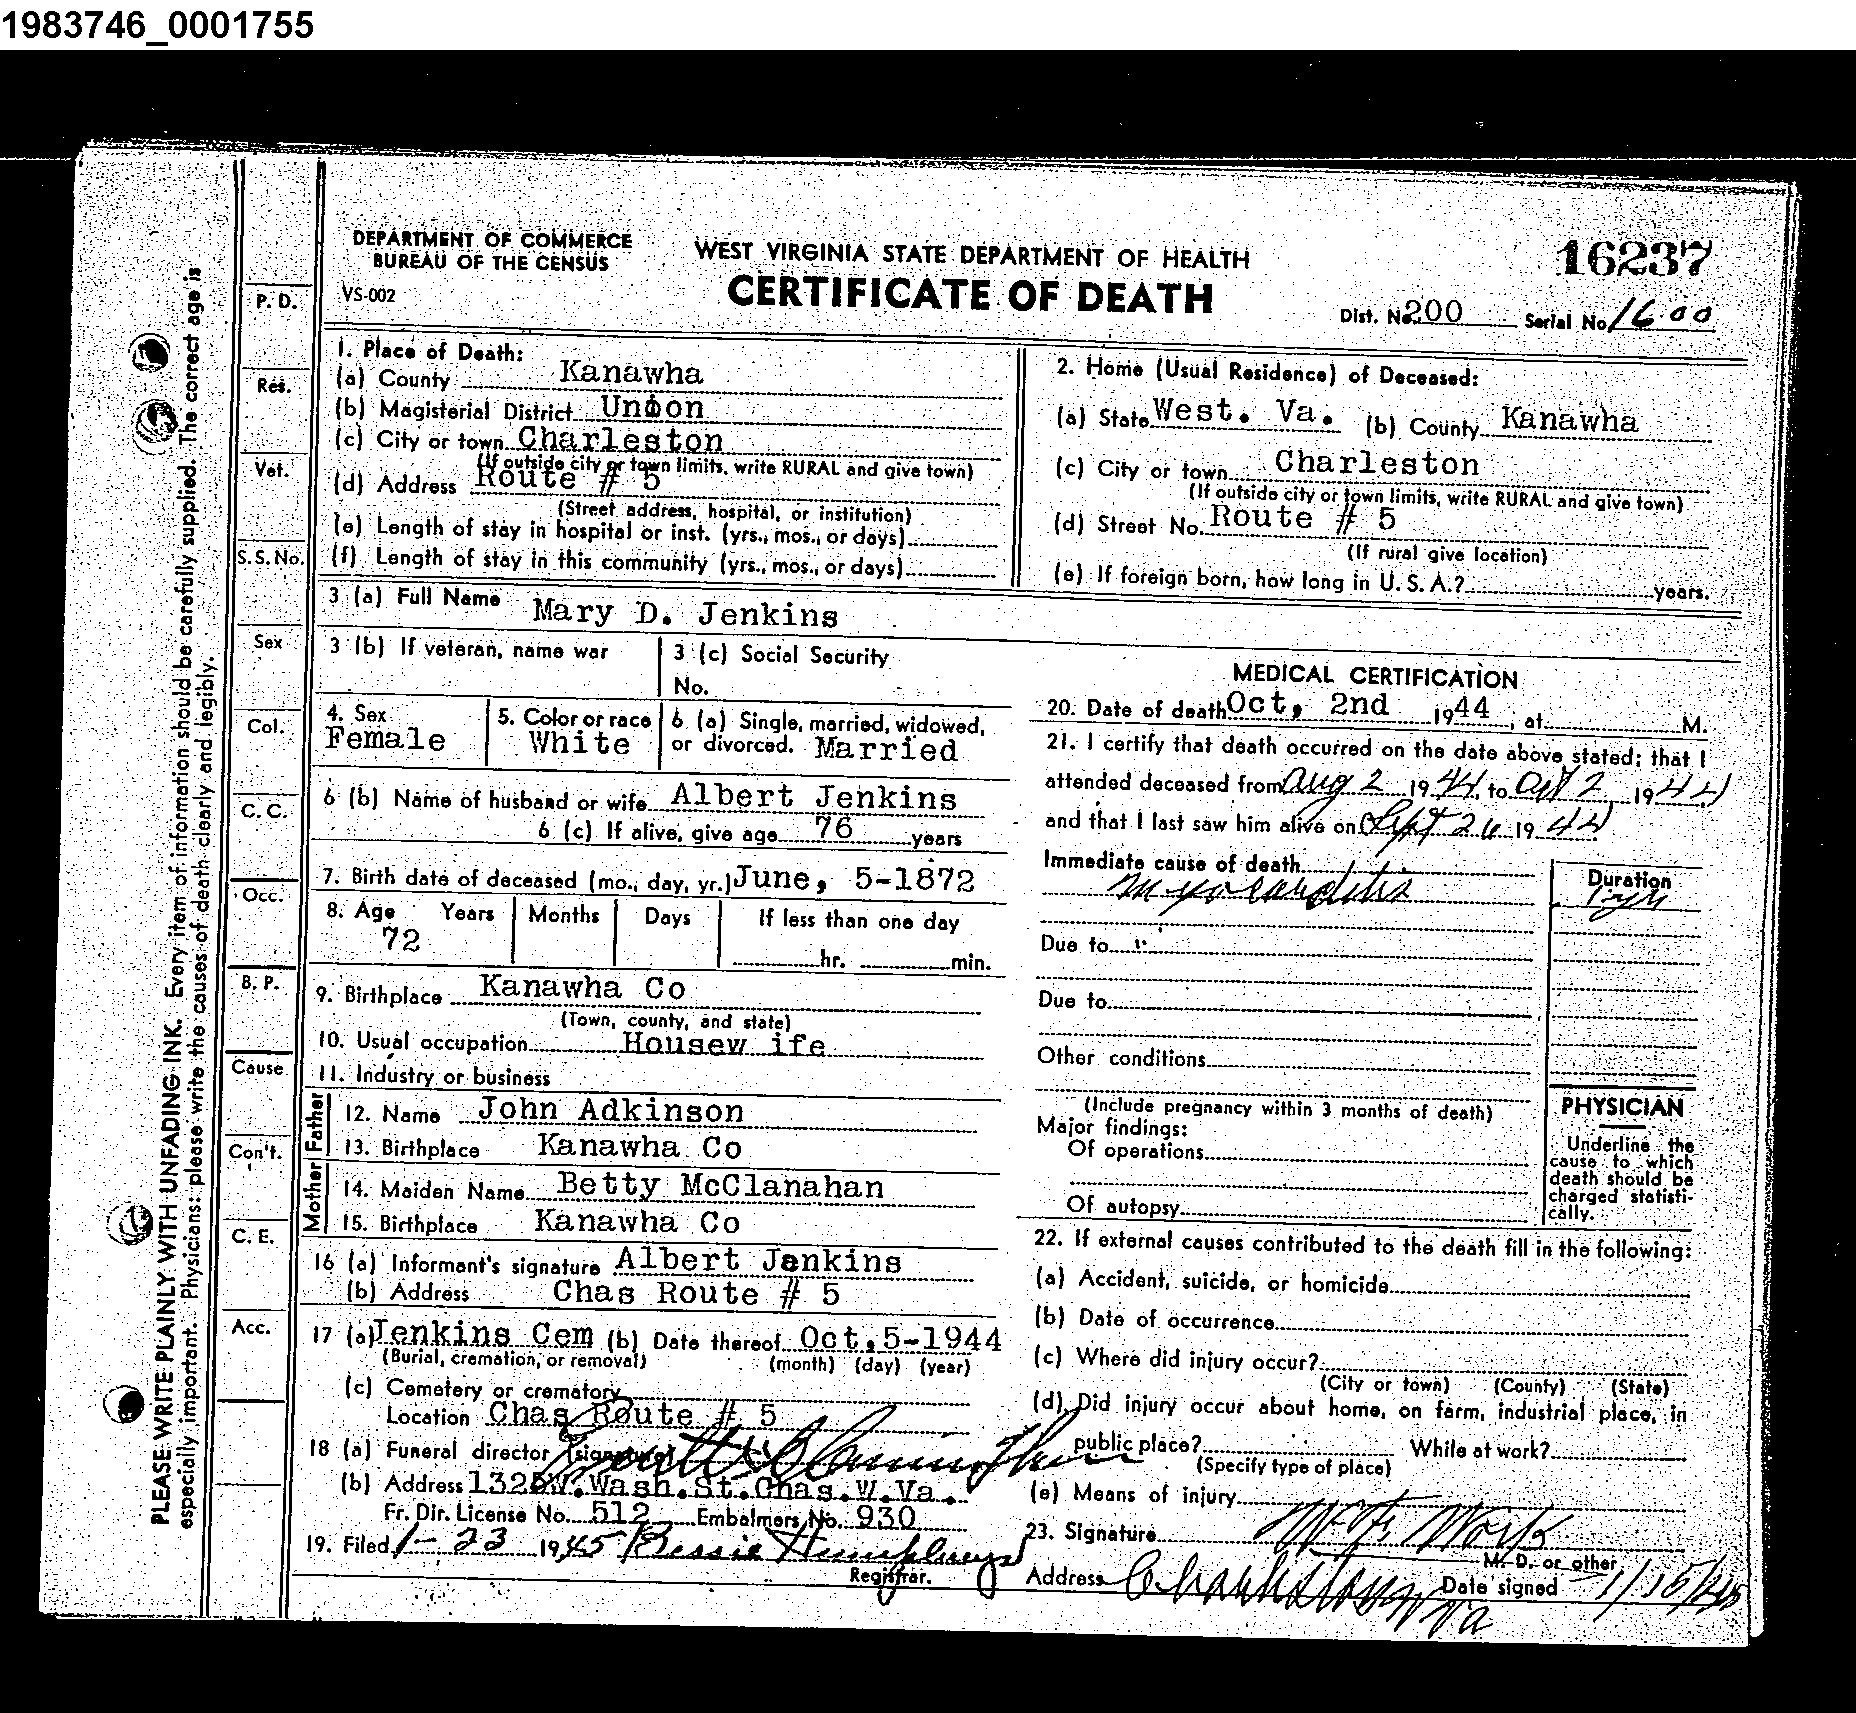 1983746_0001755
DEPARTMENT OF COMMERCE
BUREAU OF THE CENSUS
VS-002
WEST VIRGINIA STATE DEPARTMENT OF HEALTH
CERTIFICATE OF DEATH
16237
Dist. No. 200 Serial No. 1600
PLEASE WRITE PLAINLY WITH UNFADING INK. Every item of information should be carefully supplied. The correct age is
especially important. Physicians: please write the causes of death clearly and legibly.
P. D.
Res.
Vet.
S. S. No.
Sex
Col.
C. C.
Occ.
B. P.
Cause
Con't.
C. E.
Acc.
1. Place of Death:
(a) County Kanawha
(b) Magisterial District Union
(c) City or town Charleston
(If outside city or town limits, write RURAL and give town)
(d) Address Route # 5
(Street address, hospital, or institution)
(e) Length of stay in hospital or inst. (yrs., mos., or days)
(f) Length of stay in this community (yrs., mos., or days)
2. Home (Usual Residence) of Deceased:
(a) State West. Va. (b) County Kanawha
(c) City or town Charleston
(If outside city or town limits, write RURAL and give town)
(d) Street No. Route # 5
(If rural give location)
(e) If foreign born, how long in U. S. A.? years.
3 (a) Full Name Mary D. Jenkins
3 (b) If veteran, name war
3 (c) Social Security
No.
4. Sex
Female
5. Color or race
White
6 (a) Single, married, widowed,
or divorced. Married
6 (b) Name of husband or wife Albert Jenkins
6 (c) If alive, give age 76 years
7. Birth date of deceased (mo., day, yr.) June, 5-1872
8. Age Years Months Days If less than one day
72
hr. min.
9. Birthplace Kanawha Co
(Town, county, and state)
10. Usual occupation Housew ife
11. Industry or business
Father
12. Name John Adkinson
13. Birthplace Kanawha Co
Mother
14. Maiden Name Betty McClanahan
15. Birthplace Kanawha Co
16 (a) Informant's signature Albert Jenkins
(b) Address Chas Route # 5
17 (a) Jenkins Cem (b) Date thereof Oct,5-1944
(Burial, cremation, or removal) (month) (day) (year)
(c) Cemetery or crematory
Location Chas Route # 5
18 (a) Funeral director (signature)
(b) Address 1325W.Wash.St.Chas.W.Va.
Fr. Dir. License No. 512 Embalmers No. 930
19. Filed 1-23 1945 Bessie Humphreys
Registrar.
MEDICAL CERTIFICATION
20. Date of death Oct, 2nd 1944, at M.
21. I certify that death occurred on the date above stated; that I
attended deceased from Aug 2 1944, to Oct 2, 1944
and that I last saw him alive on Sept 26 1944
Immediate cause of death
myocarditis
Duration
Due to
Due to
Other conditions
(Include pregnancy within 3 months of death)
Major findings:
Of operations
Of autopsy
PHYSICIAN
Underline the
cause to which
death should be
charged statisti-
cally.
22. If external causes contributed to the death fill in the following:
(a) Accident, suicide, or homicide
(b) Date of occurrence
(c) Where did injury occur?
(City or town) (County) (State)
(d) Did injury occur about home, on farm, industrial place, in
public place? While at work?
(Specify type of place)
(e) Means of injury
23. Signature W. F. Work
M. D. or other
Address Charleston W Va Date signed 1/15/45